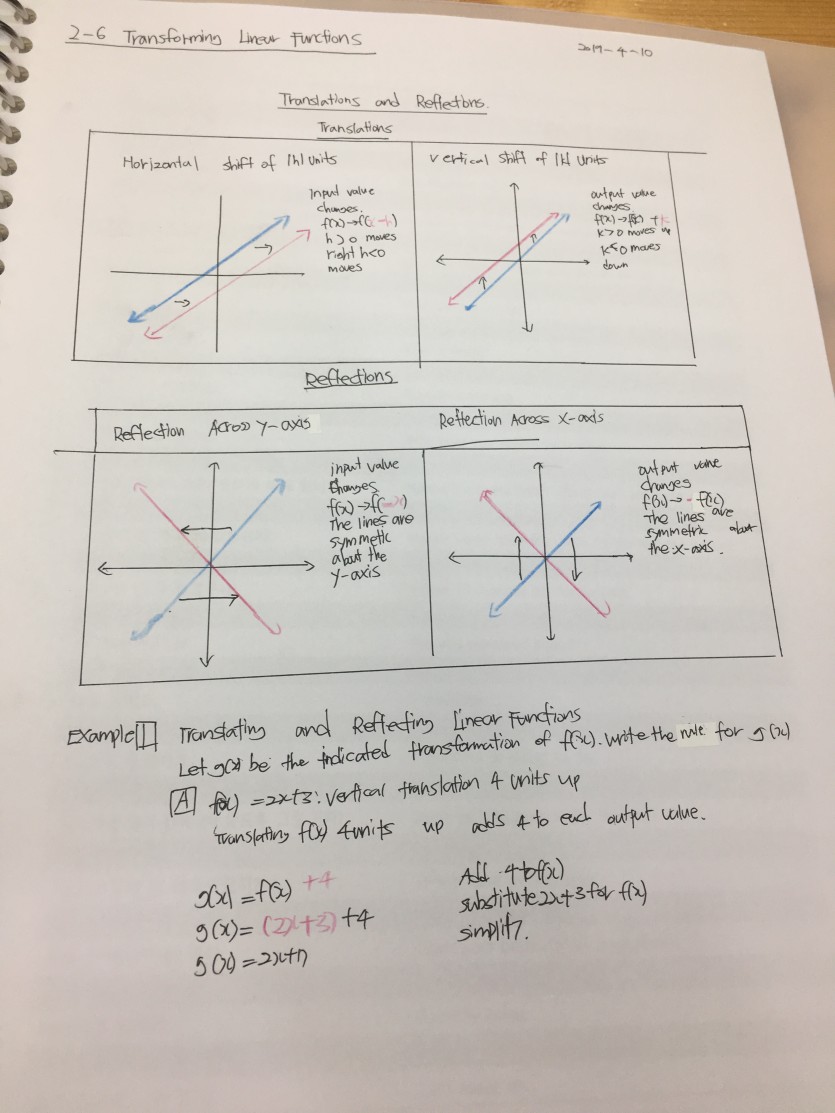 2-6 Transforming Linear Functions
2019-4-10
Translations and Reflections.
Translations
Horizontal shift of |h| units
Input value
changes.
f(x)→f(x-h)
h>0 moves
right h<0
moves
Vertical shift of |k| units
output value
changes
f(x)→f(x)+k
k>0 moves up
k<0 moves
down
Reflections
Reflection Across Y-axis
input value
changes
f(x)→f(-x)
The lines are
symmetic
about the
Y-axis
Reflection Across X-axis
output value
changes
f(x)→-f(x)
The lines are
symmetric about
the x-axis.
Example 1 Translating and Reflecting Linear Functions
Let g(x) be the indicated transformation of f(x). write the rule for g(x)
A f(x)=2x+3: vertical translation 4 units up
Translating f(x) 4 units up adds 4 to each output value.
g(x)=f(x)+4
Add 4 to f(x)
g(x)=(2x+3)+4
substitute 2x+3 for f(x)
g(x)=2x+7
simplify.